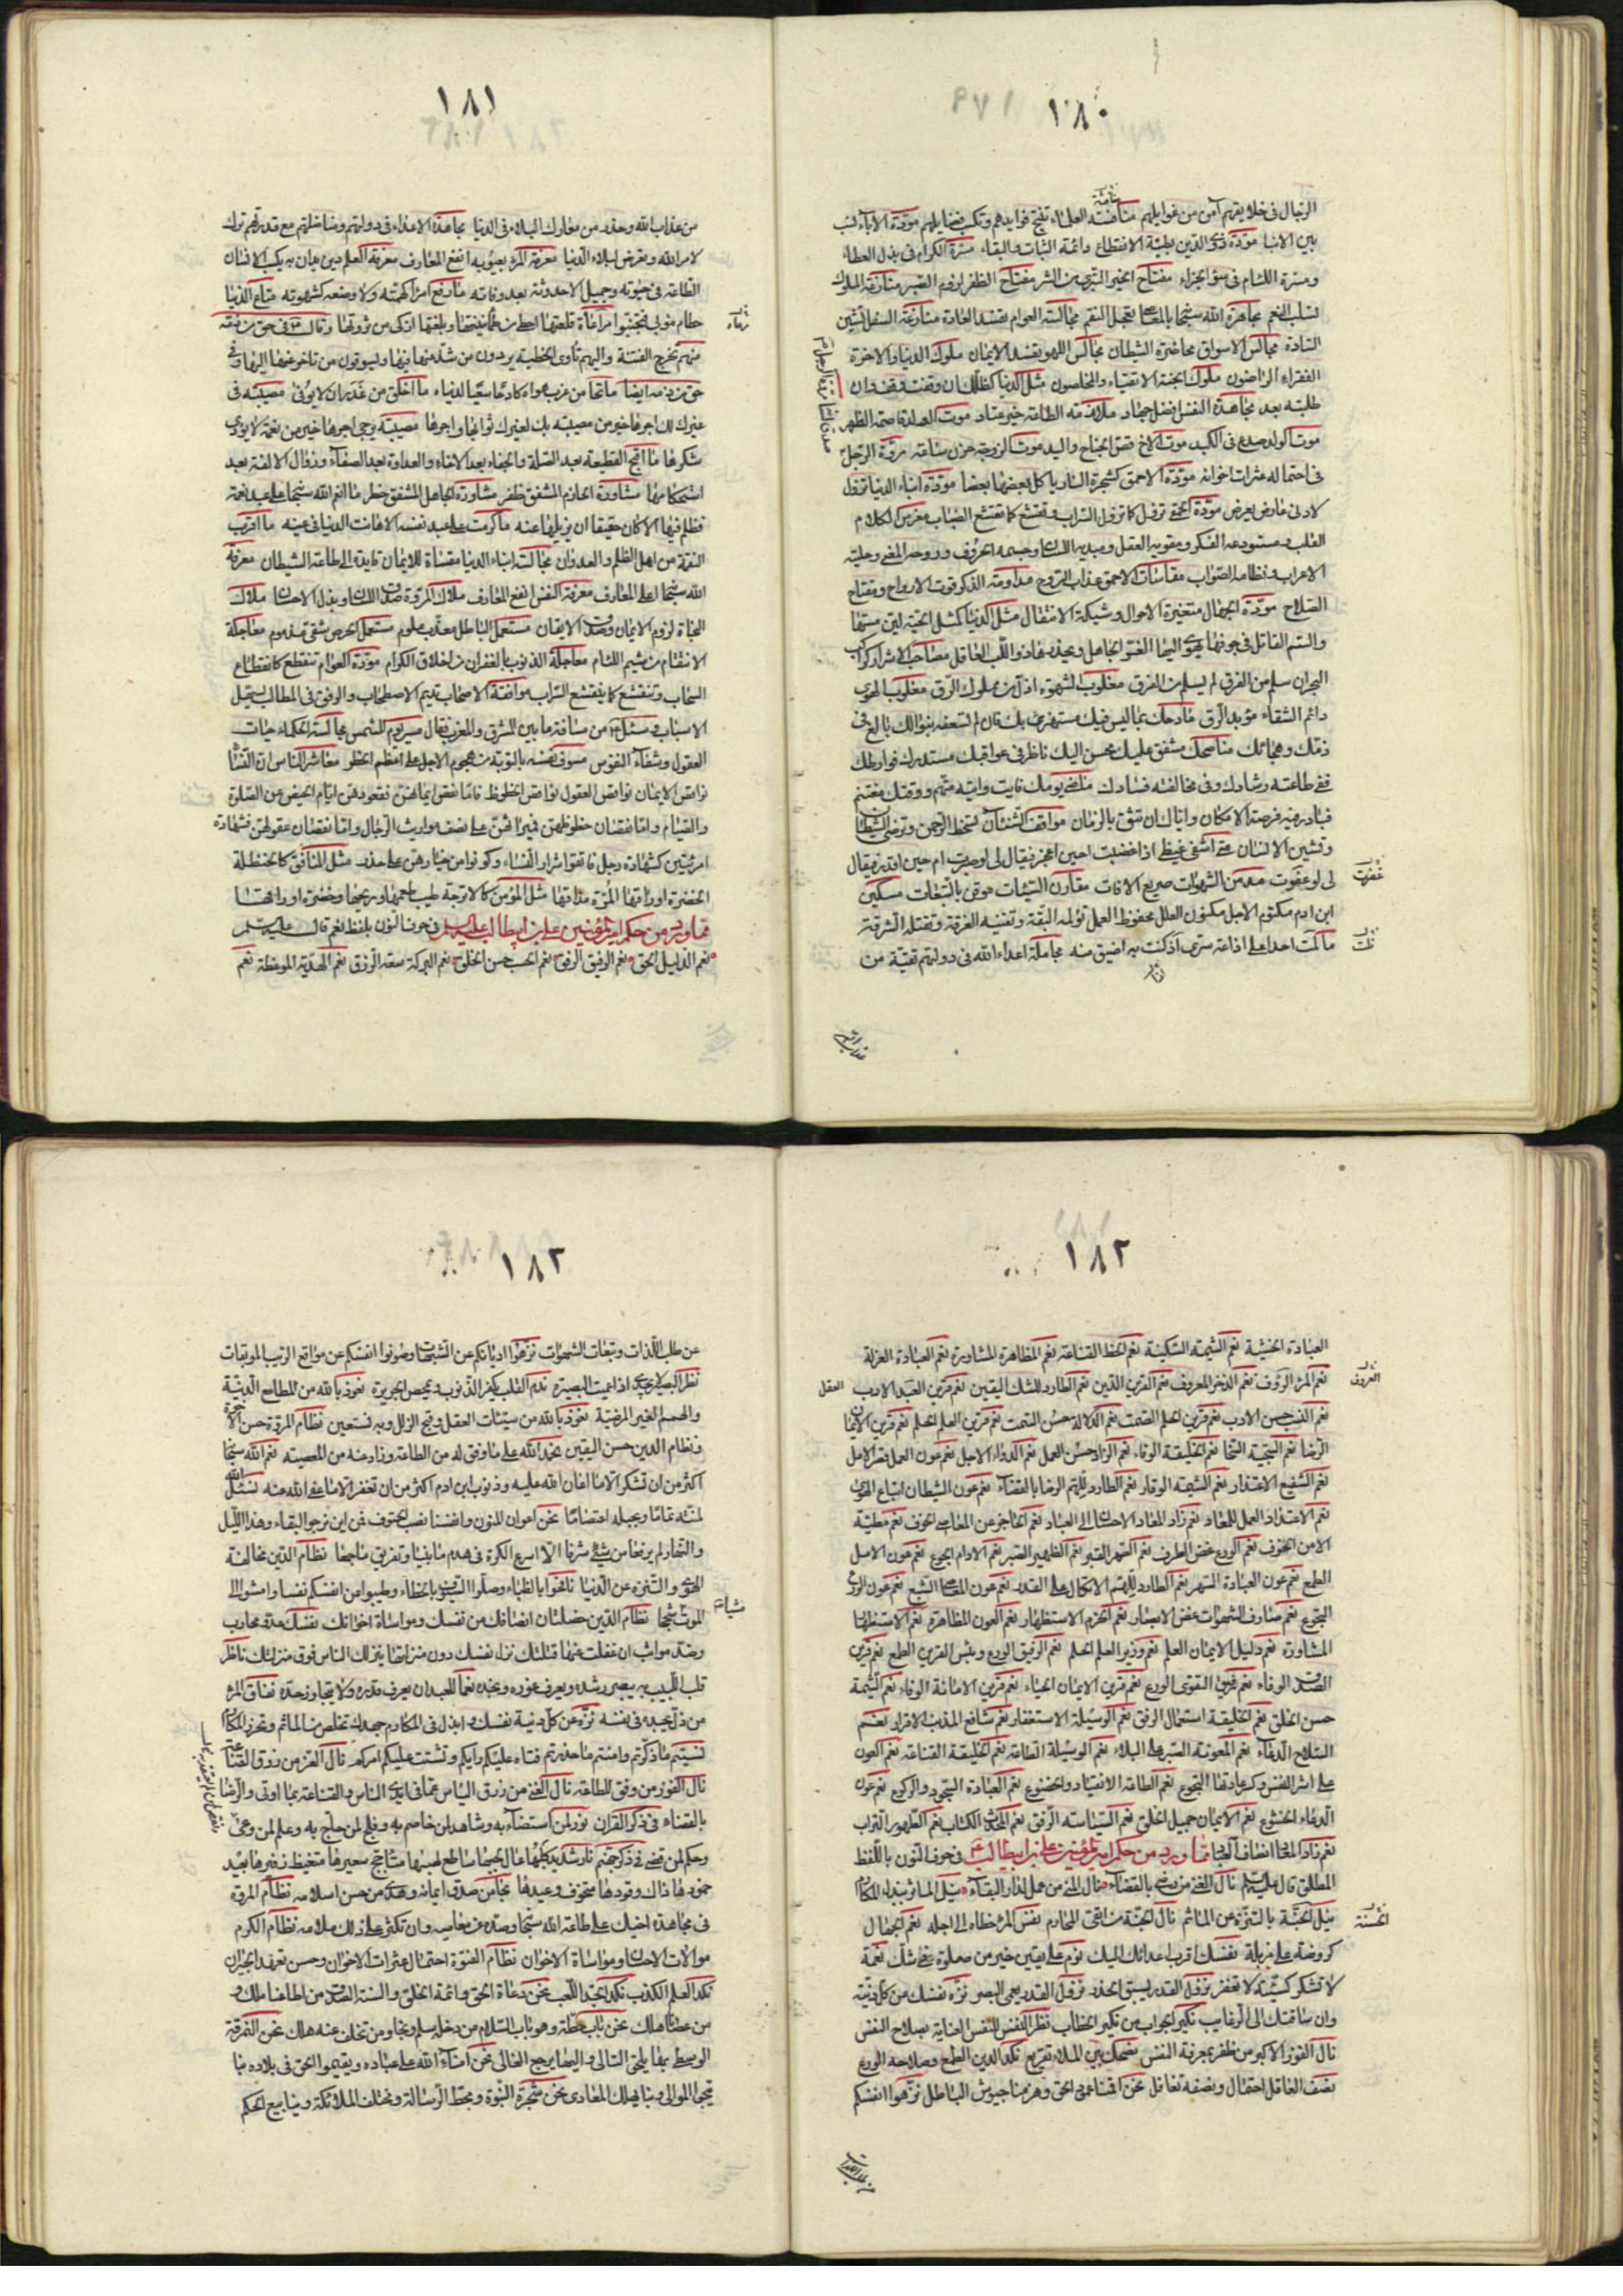 ١٨٠
الرجال فى خلايقهم آمن من غوايلهم منافثة العلماء تنتج فوايدهم وتكسب فضايلهم مودّة الآباء نسب
بين الابناء مودّة ذوى الدّين بطيئة الانقطاع دائمة الثبات والبقاء مسرّة الكرام فى بذل العطاء
ومسرة اللئام فى سوء الجزاء مفتاح الخير التبرّى من الشر مفتاح الظفر لزوم الصّبر منازعة الملوك
تسلب النعم مجاهرة الله سبحانه بالمعاصى تعجل النقم مجالسة العوام تفسد العادة منازعة السفل تشين
السّادة مجالس الاسواق محاضرة الشيطان مجالس اللهو تفسد الايمان ملوك الدنيا والاخرة
الفقراء الراضون ملوك الجنة الاتقياء والمخلصون مثل الدنيا كظلك ان وقفت وقف وان
طلبته بعد مجاهدة النفس افضل جهاد ملازمة الطاعة خير عتاد موت الولد قاصمة الظهر
موت الولد صدع فى الكبد موت الاخ قص الجناح واليد موت الزوجة حزن ساعة مروّة الرّجل
فى احتماله عثرات اخوانه مودّة الاحمق كشجرة النار يأكل بعضها بعضا مودّة ابناء الدنيا تزول
لادنى عارض يعرض مودّة الحمقى تزول كما يزول السراب وتقشع كما يقشع الضباب مغرس الكلام
القلب ومستودعه الفكر ومقويه العقل ومبديه اللسان وجسمه الحروف وروحه المعنى وحليته
الاعراب ونظامه الصّواب مقاساة الاحمق عذاب الرّوح مداومة الذكر قوت الارواح ومفتاح
الصّلاح مودّة الجهال متغيرة الاحوال وشيكة الانتقال مثل الدّنيا كمثل الحيّة ليّن مسّها
والسّم القاتل فى جوفها يهوى اليها الغرّ الجاهل ويحذرها ذو اللّب العاقل مصاحب الاشرار كراكب
البحر ان سلم من الغرق لم يسلم من الفرق مغلوب الشهوة اذل من مملوك الرّق مغلوب الهوى
دائم الشقاء مؤبد الرّق مادحك بما ليس فيك مستهزئ بك فان لم تسعفه بنوالك بالغ فى
ذمّك وهجائك مناصحك مشفق عليك محسن اليك ناظر فى عواقبك مستدرك فوارطك
ففى طاعته رشادك وفى مخالفته فسادك ماضى يومك فايت واتيه متّهم ووقتك مغتنم
فبادر فيه فرصة الامكان واياك ان تثق بالزمان مواقف الشنئان تسخط الرّحمن وترضى الشيطان
وتشين الانسان متى اشفى غيظى اذا غضبت احين اعجز فيقال لى لو صبرت ام حين اقدر فيقال
لى لو عفوت مدمن الشهوات صريع الافات مقارن السّيئات موقن بالتبعات مسكين
ابن ادم مكتوم الاجل مكنون العلل محفوظ العمل تؤلمه البقّة وتنتنه العرقة وتقتله الشرقة
ما لمت احدا على اذاعة سرّى اذ كنت به اضيق منه مجاملة اعداء الله فى دولتهم تقيّة من
١٨١
من عذاب الله وحذر من معارك البلاء فى الدنيا مجاهدة الاعداء فى دولتهم ومناضلتهم مع قدرتهم ترك
لامر الله وتعرض لبلاء الدنيا معرفة المرء بعيوبه انفع المعارف معرفة العلم دين يدان به يكسب الانسان
الطّاعة فى حيوته وجميل الاحدوثة بعد وفاته ما رفع امرأ كهمته ولا وضعه كشهوته متاع الدنيا
حطام موبى فتجنبوا مرعاة قلعتها احظى من طمأنينتها وبلغتها ازكى من ثروتها وقال ع فى حق من ذمّه
منهم تخرج الفتنة واليهم تأوى الخطيئة يردون من شذّ عنها فيها ويسوقون من تأخر عنها اليها وفى
حق من ذمه ايضا ماتحا من غرب هواه كادحا سعيا لدنياه ما اخلق من غدر ان لا يوفى مصيبة فى
غيرك لك اجرها خير من مصيبة بك لغيرك ثوابها واجرها مصيبة يرجى اجرها خير من نعمة لا يؤدى
شكرها ما اقبح القطيعة بعد الصّلة والجفاء بعد الاخاء والعداوة بعد الصفاء وزوال الالفة بعد
استحكامها مشاورة الحازم المشفق ظفر مشاورة الجاهل المشفق خطر ما انعم الله سبحانه على عبد نعمة
فظلم فيها الا كان حقيقا ان يزيلها عنه ما كرمت على عبد نفسه الا هانت الدنيا فى عينه ما اقرب
النقمة من اهل الظلم والعدوان مجالسة ابناء الدنيا منساة للايمان قايدة الى طاعة الشيطان معرفة
الله سبحانه اعلى المعارف معرفة النفس انفع المعارف ملاك المروّة صدق اللسان وبذل الاحسان ملاك
النجاة لزوم الايمان وصدق الايقان مستعمل الباطل معذب ملوم مستعمل الحرص شقى مذموم معاجلة
الانتقام من شيم اللئام معاجلة الذنوب بالغفران من اخلاق الكرام مودّة العوام تنقطع كانقطاع
السحاب وتنقشع كما ينقشع السراب موافقة الاصحاب تديم الاصطحاب والرفق فى المطالب يسهل
الاسباب وسئل ع عن مسافة ما بين المشرق والمغرب فقال مسير يوم للشمس مجالسة الحكماء حيات
العقول وشفاء النفوس مسوّف نفسه بالتوبة من هجوم الاجل على اعظم الخطر معاشر الناس ان النّسا
نواقص الايمان نواقص العقول نواقص الحظوظ فامّا نقص ايمانهنّ فقعودهنّ ايام الحيض عن الصّلوة
والصّيام وامّا نقصان حظوظهنّ فميراثهنّ على نصف مواريث الرّجال وامّا نقصان عقولهنّ فشهادة
امرئتين كشهادة رجل فاتقوا شرار النساء وكونوا من خيارهنّ على حذر مثل المنافق كالحنظلة
الخضرة اوراقها المرّة مذاقها مثل المؤمن كالاترجة طيب طعمها وريحها وخضرة اوراقها
ممّا ورد من حكم امير المؤمنين على بن ابيطالب عليه السلم فى حرف النون بلفظ نعم قال عليه السلم
نعم الدّليل الحق نعم الرفيق الرفق نعم الحسب حسن الخلق نعم البركة سعة الرّزق نعم الهديّة الموعظة نعم
١٨٢
العبادة الخشية نعم الشيمة السّكينة نعم الحظ القناعة نعم المظاهرة المشاورة نعم العبادة العزلة
نعم المرء الرؤف نعم الذخر المعروف نعم القرين الدّين نعم الطارد للشك اليقين نعم قرين العقل الادب
نعم النسب حسن الادب نعم قرين الحلم الصّمت نعم الدّلالة حسن السّمت نعم قرين العلم الحلم نعم قرين الايمان
الرّضا نعم السّجيّة السّخا نعم الخليقة الوفاء نعم الزاد حسن العمل نعم الدّواء الاجل نعم عون العمل قصر الامل
نعم الشفيع الاعتذار نعم الشيمة الوقار نعم الطارد للهم الرضا بالقضاء نعم عون الشيطان اتباع الهوى
نعم الاعتداد العمل للمعاد نعم زاد المعاد الاحسان الى العباد نعم الحاجز عن المعاصى الخوف نعم مطيّة
الامن الخوف نعم الورع غض الطرف نعم الصّهر القبر نعم الظهير الصّبر نعم الادام الجوع نعم عون الامل
الطمع نعم عون العبادة السّهر نعم الطارد للهمّ الاتكال على القدر نعم عون المعاصى الشبع نعم عون الورع
التجوّع نعم صارف الشهوات غض الابصار نعم الحزم الاستظهار نعم العون المظاهرة نعم الاستظهار
المشاورة نعم دليل الايمان العلم نعم وزير العلم الحلم نعم الرفيق الورع وبئس القرين الطمع نعم قرين
الصّدق الوفاء نعم قرين التقوى الورع نعم قرين الايمان الحياء نعم قرين الامانة الوفاء نعم الشيمة
حسن الخلق نعم الخليقة استعمال الرفق نعم الوسيلة الاستغفار نعم شافع المذنب الاقرار نعم
السّلاح الدّعاء نعم المعونة الصّبر على البلاء نعم الوسيلة الطاعة نعم الخليقة القناعة نعم العون
على اشر النفس وكسر عادتها التجوّع نعم الطاعة الانقياد والخضوع نعم العبادة السّجود والركوع نعم عون
الدّعاء الخشوع نعم الايمان جميل الخلق نعم السّياسة الرّفق نعم المحدّث الكتاب نعم الطهور التراب
ممّا ورد من حكم امير المؤمنين على بن ابيطالب ع فى حرف النّون باللّفظ
المطلق قال عليه السلم نال الغنى من رضى بالقضاء نال المنى من عمل لدار البقاء نيل المآثر ببذل المكارم
نيل الجنّة بالتنزّه عن المآثم نال الجنّة من اتقى المحارم نفس المرء خطاه الى اجله نعم الجهال
كروضة على مزبلة نفسك اقرب اعدائك اليك نوم على يقين خير من صلوة فى شك نعمة
لا تشكر كسيّئة لا تغفر نزول القدر يسبق الحذر نزول القدر يعمى البصر نزّه نفسك عن كل دنيّة
وان ساقتك الى الرّغايب نكير الجواب من نكير الخطاب نظر النفس للنفس العناية بصلاح النفس
نال الفوز الاكبر من ظفر بمعرفة النفس نصحك بين الملاء تقريع نكد الدين الطمع وصلاحه الورع
نصف العاقل احتمال ونصفه تغافل نحن اقمنا عمود الحق وهزمنا جيوش الباطل نزّهوا انفسكم
١٨٢
عن طلب اللّذات وتبعات الشهوات نزّهوا اديانكم عن الشبهات وصونوا انفسكم عن مواقع الريب الموبقات
نظر البصر لا يجدى اذا عميت البصيرة ندم القلب يكفر الذنوب ويمحص الجريرة نعوذ بالله من المطامع الدنيّة
والهمم الغير المرضيّة نعوذ بالله من سيّئات العقل وقبح الزلل وبه نستعين نظام المروّة حسن الاخوّة
ونظام الدين حسن اليقين نحمد الله على ما وفق له من الطاعة وذاد عنه من المعصية نعم الله سبحانه
اكثر من ان تشكر الا ما اعان الله عليه وذنوب ابن ادم اكثر من ان تغفر الا ما عفى الله عنه نسئل الله
لمنّته تماما وبحبله اعتصاما نحن اعوان المنون وانفسنا نصب الحتوف فمن اين نرجو البقاء وهذا اللّيل
والنهار لم يرفعا من شئ شرفا الا اسرعا الكرّة فى هدم ما بنيا وتفريق ما جمعا نظام الدّين مخالفة
الهوى والتنزه عن الدّنيا نافحوا بالظبا وصلوا السيوف بالخطاء وطيبوا عن انفسكم نفسا وامشوا الى
الموت سجحا نظام الدّين خصلتان انصافك من نفسك ومواساة اخوانك نفسك عدو محارب
وضدّ مواثب ان غفلت عنها قتلتك نزل نفسك دون منزلتها ينزلك الناس فوق منزلتك ناظر
قلب اللّبيب به يبصر رشده ويعرف غوره ونجده نعما للعبد ان يعرف قدره ولا يتجاوز حدّه نفاق المرء
من ذل يجده فى نفسه نزّه عن كل دنيّة نفسك وابذل فى المكارم جهدك تخلص من المآثم وتحرز المكارم
نسيتم ما ذكّرتم وامنتم ما حذرتم فتاه عليكم رأيكم وتشتت عليكم امركم نال العزّ من رزق القناعة
نال الفوز من وفق للطاعة نال الغنى من رزق اليأس عمّا فى ايدى الناس والقناعة بما اوتى والرّضا
بالقضاء فى ذكر القران نور لمن استضاء به وشاهد لمن خاصم به وفلج لمن حاجّ به وعلم لمن وعى
وحكم لمن قضى فى ذكر جهنم نار شديد كلبها عال لجبها ساطع لهبها متأجّج سعيرها متغيّظ زفيرها بعيد
خمودها ذاك وقودها متخوف وعيدها نجا من صدق ايمانه وهدى من حسن اسلامه نظام المروّة
فى مجاهدة اخيك على طاعة الله سبحانه وصدّه عن معاصيه وان تكثر على ذلك ملامه نظام الكرم
موالاة الاحسان ومواساة الاخوان نظام الفتوّة احتمال عثرات الاخوان وحسن تعهّد الجيران
نكد العلم الكذب نكد الجد اللّعب نحن دعاة الحق وائمة الخلق والسنة الصّدق من اطاعنا ملك و
من عصانا هلك نحن باب حطّة وهو باب السّلام من دخله سلم ونجا ومن تخلف عنه هلك نحن النمرقة
الوسطى بها يلحق التالى واليها يرجع الغالى نحن امناء الله على عباده ومقيموا الحق فى بلاده بنا
ينجى الموالى وبنا يهلك المعادى نحن شجرة النّبوة ومحطّ الرّسالة ومختلف الملائكة وينابيع الحكم